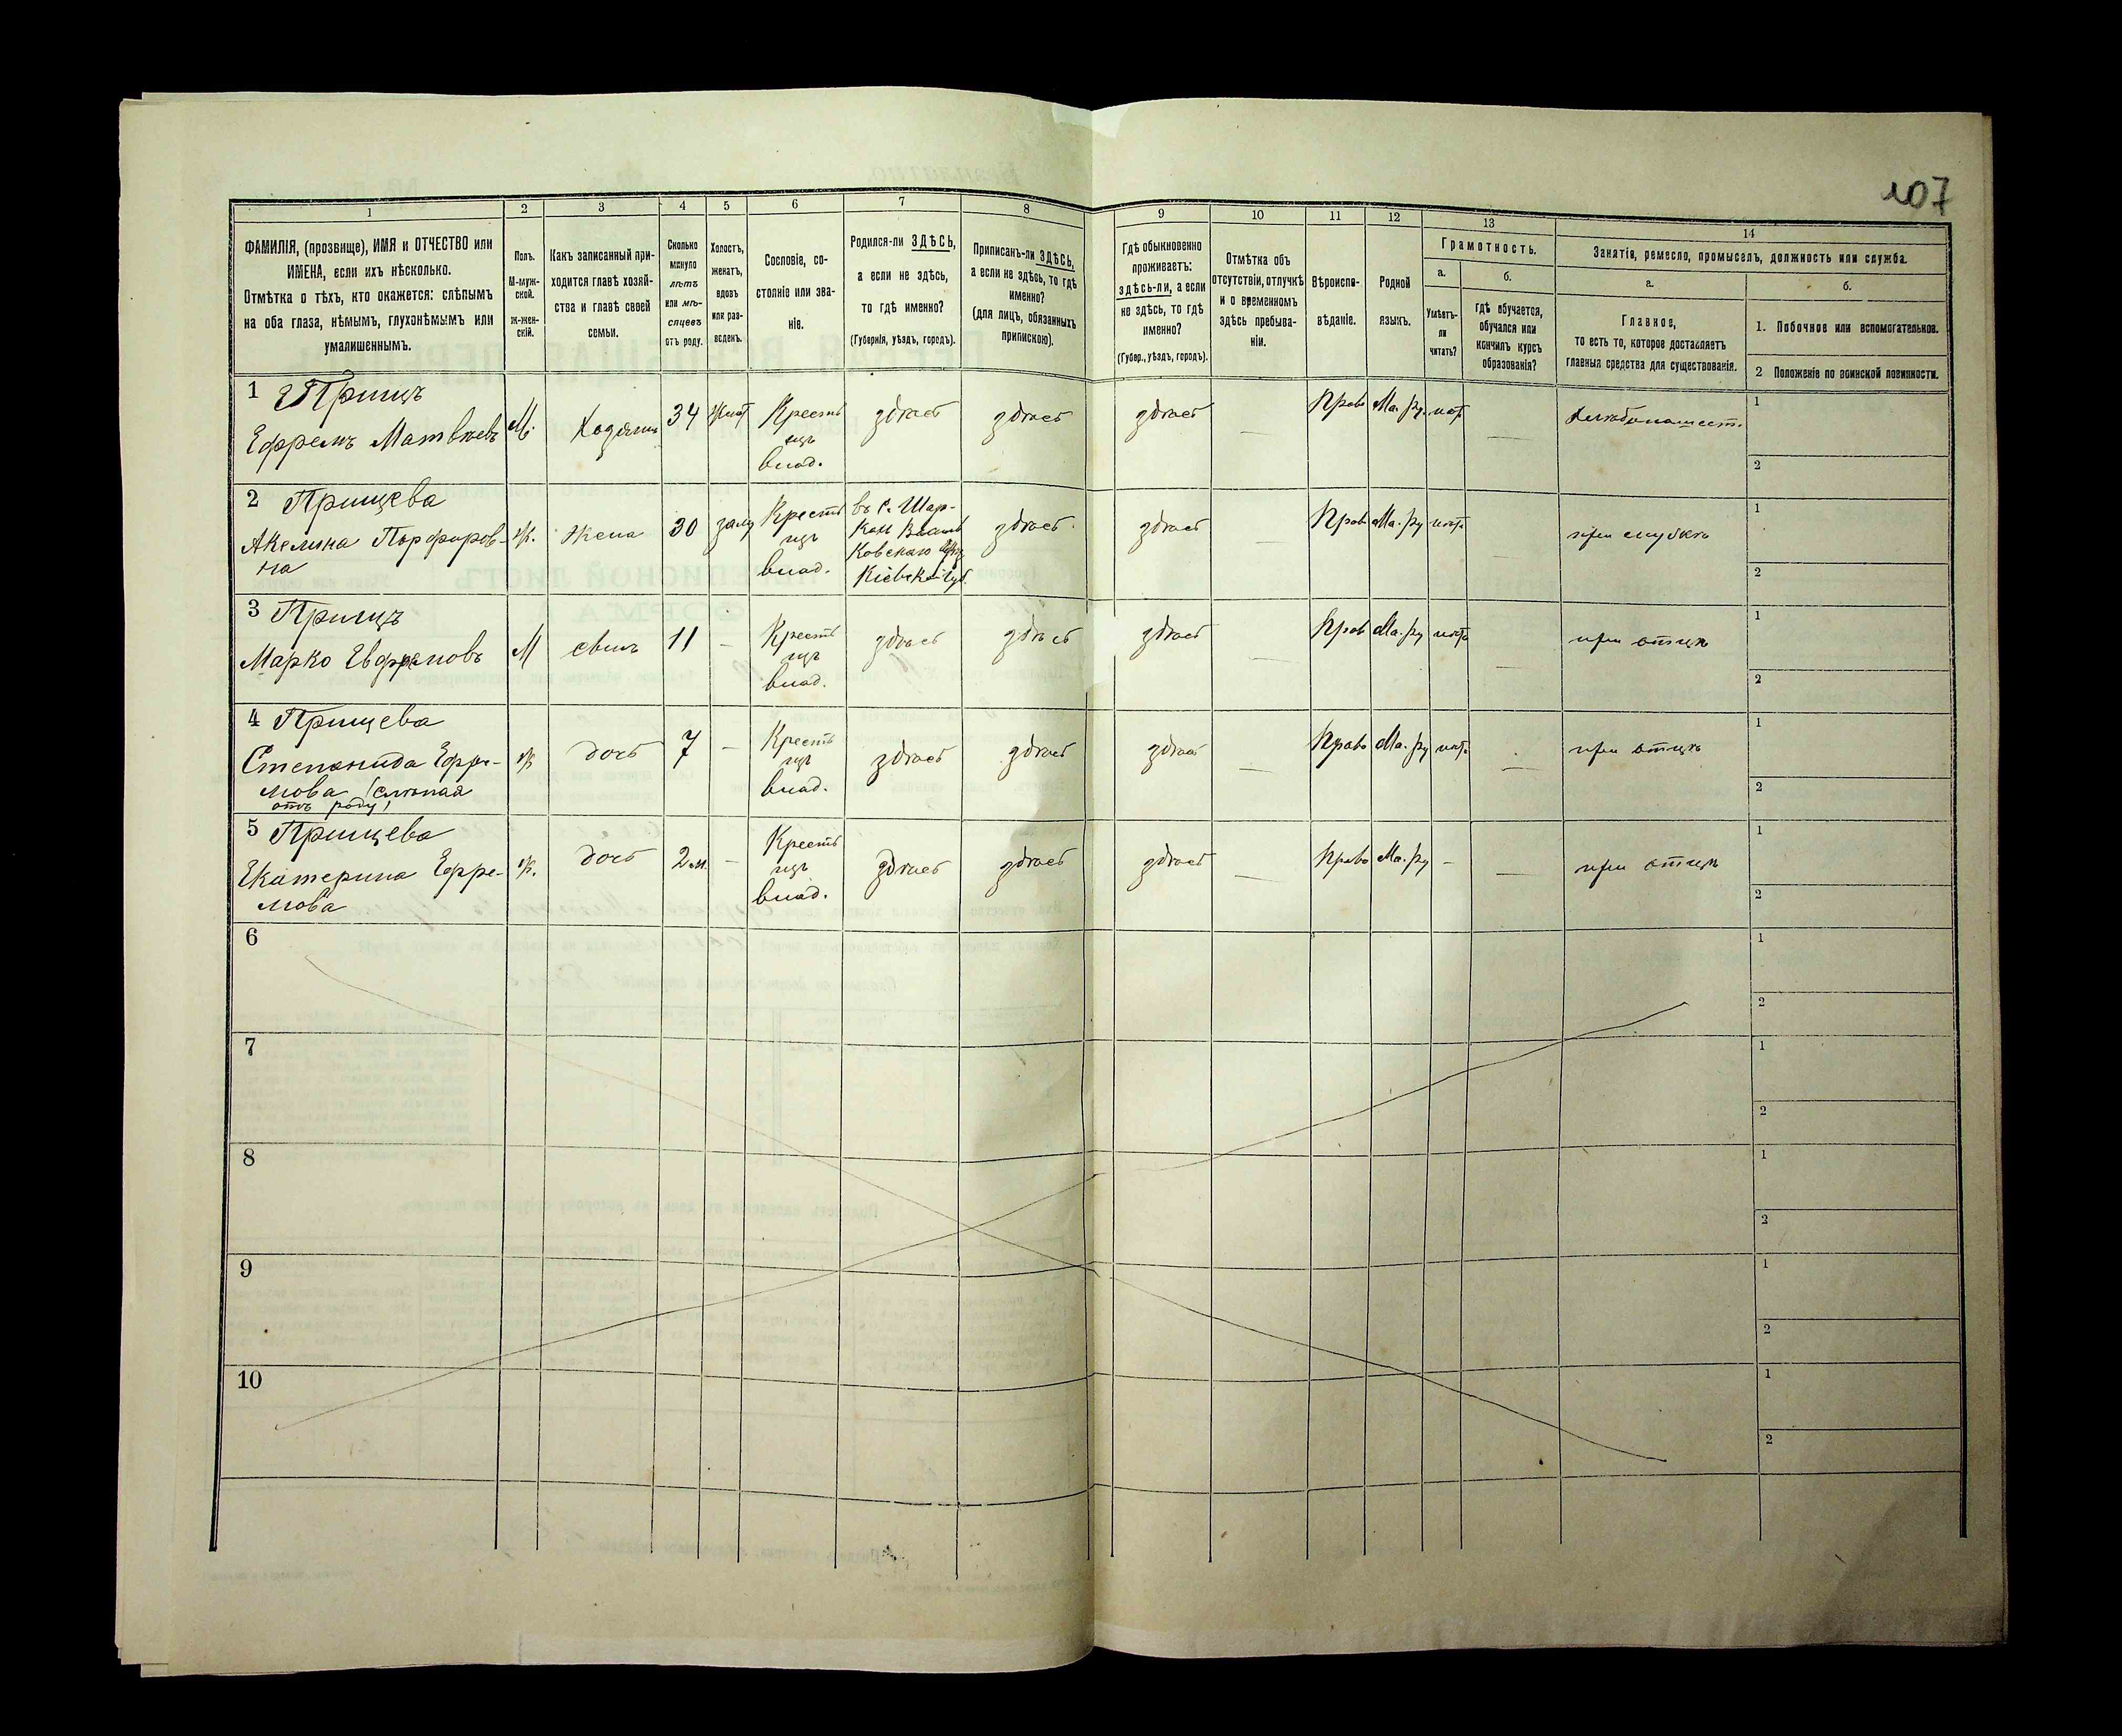 107
1
2
3
4
5
6
7
8
9
10
11
12
13
14
ФАМИЛІЯ, (прозвище), ИМЯ и ОТЧЕСТВО или
ИМЕНА, если ихъ нѣсколько.
Отмѣтка о тѣхъ, кто окажется: слѣпымъ
на оба глаза, нѣмымъ, глухонѣмымъ или
умалишеннымъ.
Полъ.
М-муж-
ской.
Ж-жен-
скій.
Какъ записанный при-
ходится главѣ хозяй-
ства и главѣ своей
семьи.
Сколько
минуло
лѣтъ
или мѣ-
сяцевъ
отъ роду.
Холостъ,
женатъ,
вдовъ
или раз-
веденъ.
Сословіе, со-
стояніе или зва-
ніе.
Родился-ли ЗДѢСЬ,
а если не здѣсь,
то гдѣ именно?
(Губернія, уѣздъ, городъ).
Приписанъ-ли ЗДѢСЬ,
а если не здѣсь, то гдѣ
именно?
(для лицъ, обязанныхъ
припискою).
Гдѣ обыкновенно
проживаетъ:
здѣсь-ли, а если
не здѣсь, то гдѣ
именно?
(Губер., уѣздъ, городъ).
Отмѣтка объ
отсутствіи, отлучкѣ
и о временномъ
здѣсь пребыва-
ніи.
Вѣроиспо-
вѣданіе.
Родной
языкъ.
Грамотность.
а.
Умѣетъ-
ли
читать?
б.
гдѣ обучается,
обучался или
кончилъ курсъ
образованія?
Занятія, ремесло, промыселъ, должность или служба.
а.
Главное,
то есть то, которое доставляетъ
главныя средства для существованія.
б.
1. Побочное или вспомогательное.
2 Положеніе по воинской повинности.
1 Прищъ
Ефремъ Матвѣевъ
М.
Хозяинъ
34
Жнат
Крестъ
изъ
влад.
здѣсь
здѣсь
здѣсь
—
Прав
Ма. ру.
нѣтъ
—
1
2
2 Прищева
Акелина Порфиров-
на
Ж.
Жена
30
зам
Крест
изъ
влад.
въ С. Шар-
Кіевской губ.
здѣсь
здѣсь
—
Прав
Ма. ру
нѣтъ
—
при мужѣ
1
2
3 Прищъ
Марко Ефремовъ
М
сынъ
11
—
Крест
изъ
влад.
здѣсь
здѣсь
здѣсь
—
Прав
Ма. ру
нѣтъ
—
при отцѣ
1
2
4 Прищева
Степанида Ефре-
мова (слѣпая
отъ роду)
Ж
дочь
7
—
Крест
изъ
влад.
здѣсь
здѣсь
здѣсь
—
Право
Ма. ру
нѣтъ
—
при отцѣ
1
2
5 Прищева
Екатерина Ефре-
мова
Ж.
дочь
2 м.
—
Крест
изъ
влад.
здѣсь
здѣсь
здѣсь
—
Право
Ма. ру
—
—
при отцѣ
1
2
6
1
2
7
1
2
8
1
2
9
1
2
10
1
2